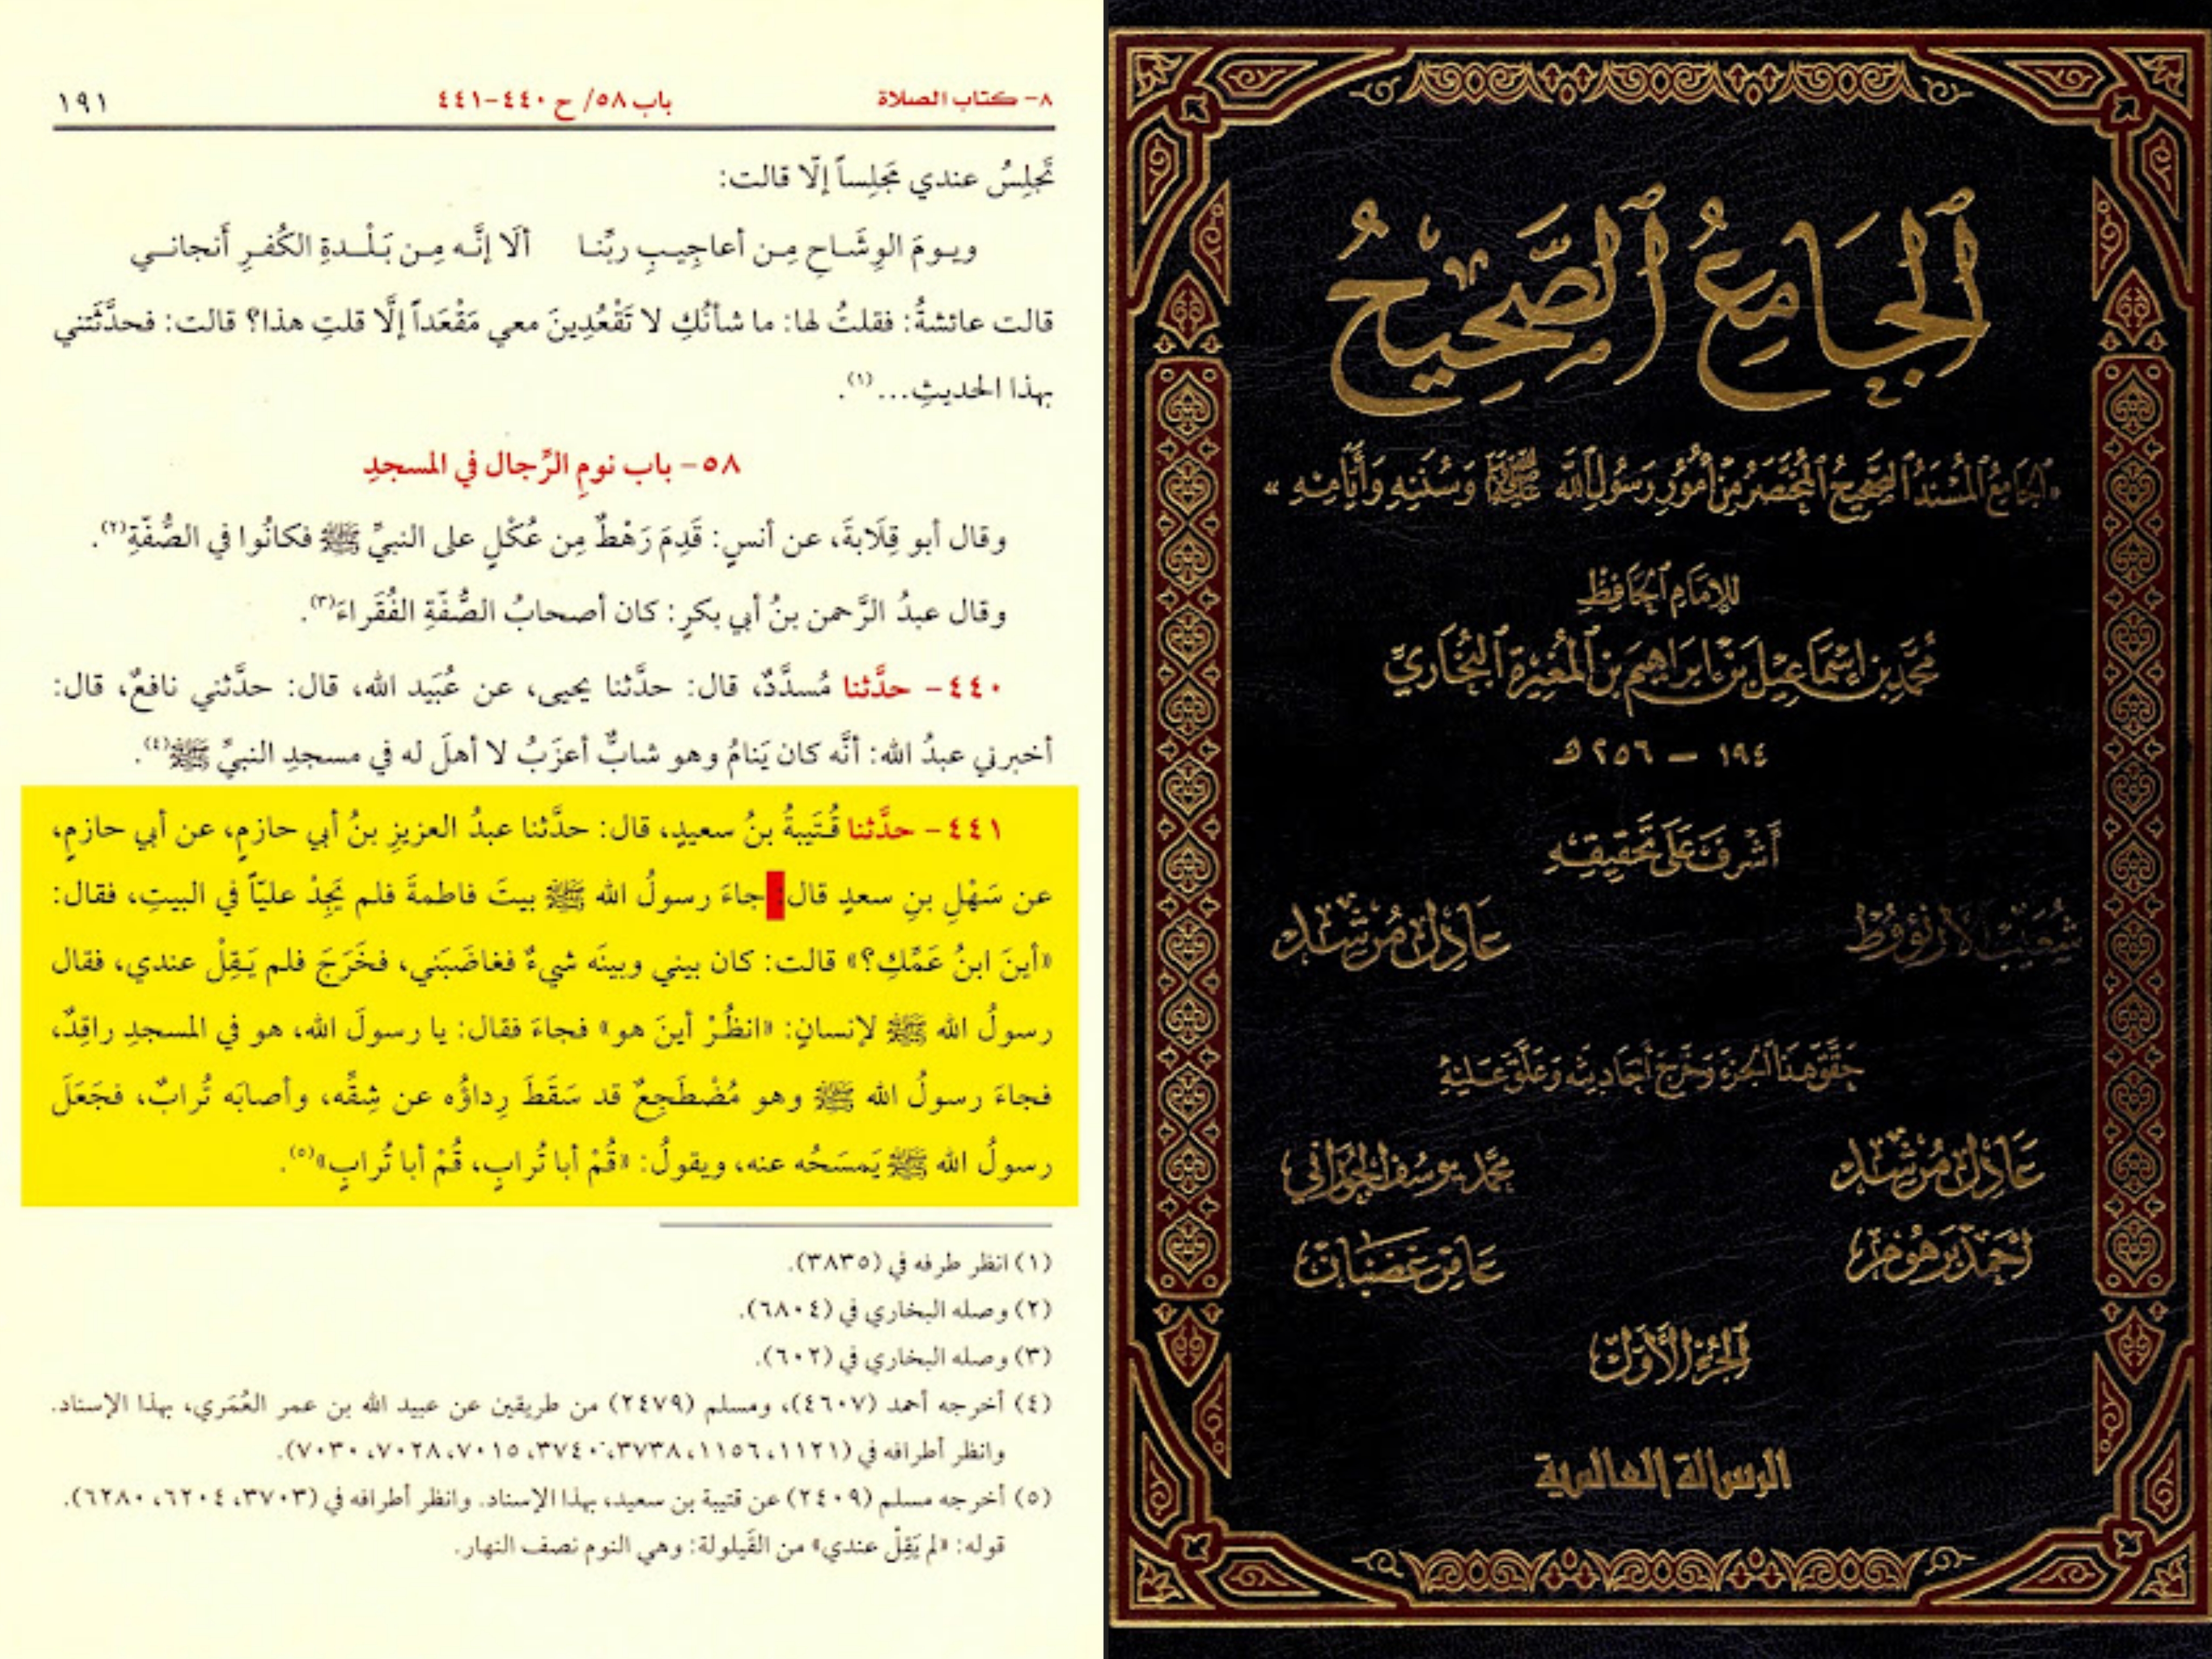 ٨- كتاب الصلاة باب ٥٨/ ح ٤٤٠-٤٤١ ١٩١
تَجلِسُ عندي مَجلِساً إلّا قالت:
ويومَ الوِشَاحِ مِن أعاجِيبِ ربِّنا ألَا إنَّه مِن بَلْدةِ الكُفرِ أَنجاني
قالت عائشةُ: فقلتُ لها: ما شأنُكِ لا تَقْعُدِينَ معي مَقْعَداً إلَّا قلتِ هذا؟ قالت: فحدَّثَتني
بهذا الحديثِ...(١).
٥٨- باب نومِ الرِّجال في المسجدِ
وقال أبو قِلَابةَ، عن أنسٍ: قَدِمَ رَهْطٌ مِن عُكْلٍ على النبيِّ ﷺ فكانُوا في الصُّفّةِ(٢).
وقال عبدُ الرَّحمن بنُ أبي بكرٍ: كان أصحابُ الصُّفّةِ الفُقَراءَ(٣).
٤٤٠- حدَّثنا مُسدَّدٌ، قال: حدَّثنا يحيى، عن عُبَيد الله، قال: حدَّثني نافعٌ، قال:
أخبرني عبدُ الله: أنَّه كان يَنامُ وهو شابٌّ أعزَبُ لا أهلَ له في مسجدِ النبيِّ ﷺ(٤).
٤٤١- حدَّثنا قُتَيبةُ بنُ سعيدٍ، قال: حدَّثنا عبدُ العزيزِ بنُ أبي حازمٍ، عن أبي حازمٍ،
عن سَهْلِ بنِ سعدٍ قال: جاءَ رسولُ الله ﷺ بيتَ فاطمةَ فلم يَجِدْ عليّاً في البيتِ، فقال:
«أينَ ابنُ عَمِّكِ؟» قالت: كان بيني وبينَه شيءٌ فغاضَبَني، فخَرَجَ فلم يَقِلْ عندي، فقال
رسولُ الله ﷺ لإنسانٍ: «انظُرْ أينَ هو» فجاءَ فقال: يا رسولَ الله، هو في المسجدِ راقِدٌ،
فجاءَ رسولُ الله ﷺ وهو مُضْطَجِعٌ قد سَقَطَ رِداؤُه عن شِقِّه، وأصابَه تُرابٌ، فجَعَلَ
رسولُ الله ﷺ يَمسَحُه عنه، ويقولُ: «قُمْ أبا تُرابٍ، قُمْ أبا تُرابٍ»(٥).
(١) انظر طرفه في (٣٨٣٥).
(٢) وصله البخاري في (٦٨٠٤).
(٣) وصله البخاري في (٦٠٢).
(٤) أخرجه أحمد (٤٦٠٧)، ومسلم (٢٤٧٩) من طريقين عن عبيد الله بن عمر العُمَري، بهذا الإسناد.
وانظر أطرافه في (١١٢١، ١١٥٦، ٣٧٣٨، ٣٧٤٠، ٧٠١٥، ٧٠٢٨، ٧٠٣٠).
(٥) أخرجه مسلم (٢٤٠٩) عن قتيبة بن سعيد، بهذا الإسناد. وانظر أطرافه في (٣٧٠٣، ٦٢٠٤، ٦٢٨٠).
قوله: «لم يَقِلْ عندي» من القَيلولة: وهي النوم نصف النهار.
اَلْجَامِعُ الصَّحِيحُ
«اَلْجَامِعُ الْمُسْنَدُ الصَّحِيحُ الْمُخْتَصَرُ مِنْ أُمُورِ رَسُولِ اللهِ ﷺ وَسُنَنِهِ وَأَيَّامِهِ»
لِلإِمَامِ الْحَافِظِ
مُحَمَّدِ بْنِ إِسْمَاعِيلَ بْنِ إِبْرَاهِيمَ بْنِ الْمُغِيرَةِ الْبُخَارِيِّ
١٩٤ – ٢٥٦ هـ
أَشْرَفَ عَلَى تَحْقِيقِهِ
شُعَيْبُ الأَرْنَؤُوط عَادِل مُرْشِد
حَقَّقَ هَذَا الْجُزْءَ وَخَرَّجَ أَحَادِيثَهُ وَعَلَّقَ عَلَيْهِ
عَادِل مُرْشِد مُحَمَّد يُوسُف الْحَوْرَانِي
أَحْمَد بَرْهُوم عَامِر غَضْبَان
الْجُزْءُ الأَوَّل
الرسالة العالمية